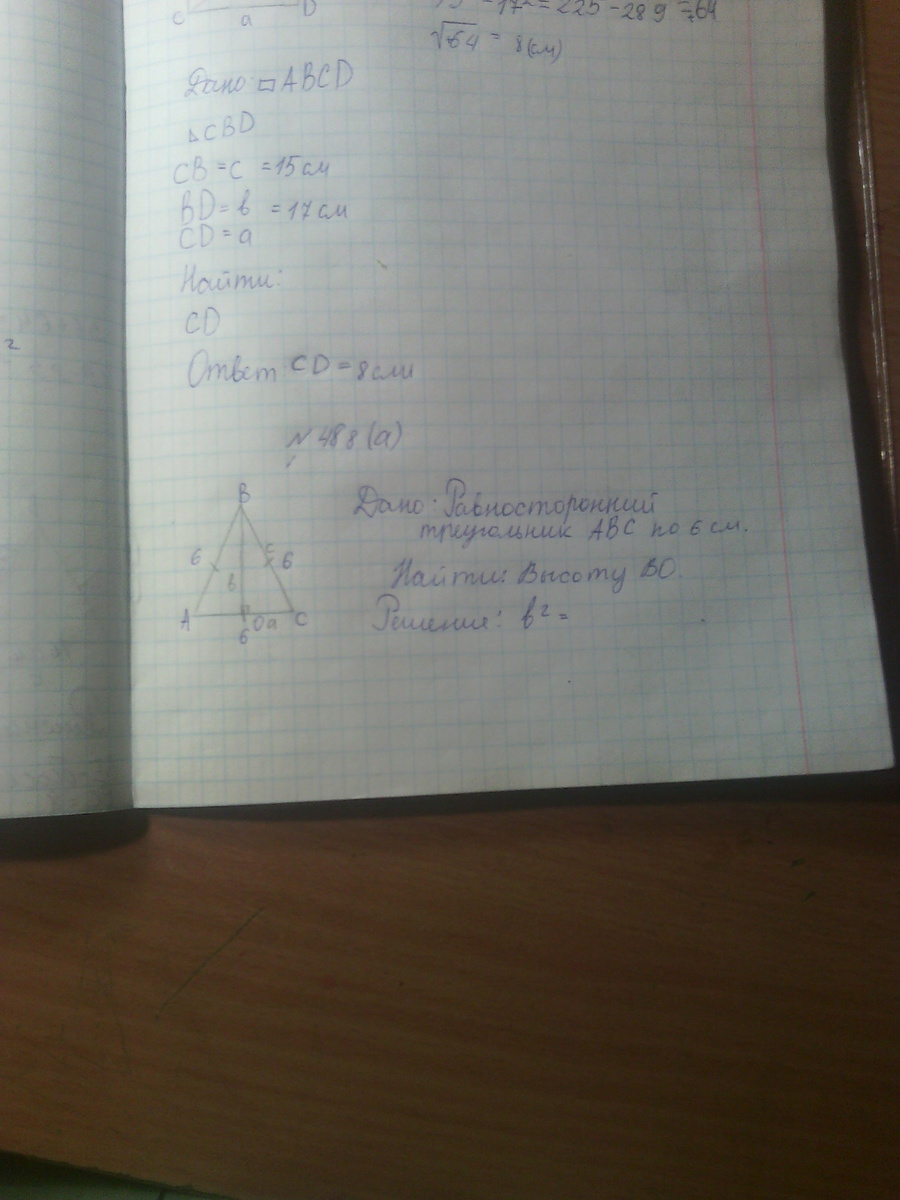 C a D
15² - 17² = 225 - 289 = 64
√64 = 8 (см)
Дано: ▭ ABCD
△CBD
CB = c = 15 см
BD = в = 17 см
CD = a
Найти:
CD
Ответ CD = 8 см
2
N 488 (а)
B
6 в c 6
A 6 O a C
Дано: Равносторонний
треугольник ABC по 6 см.
Найти: Высоту BO.
Решение: в² =